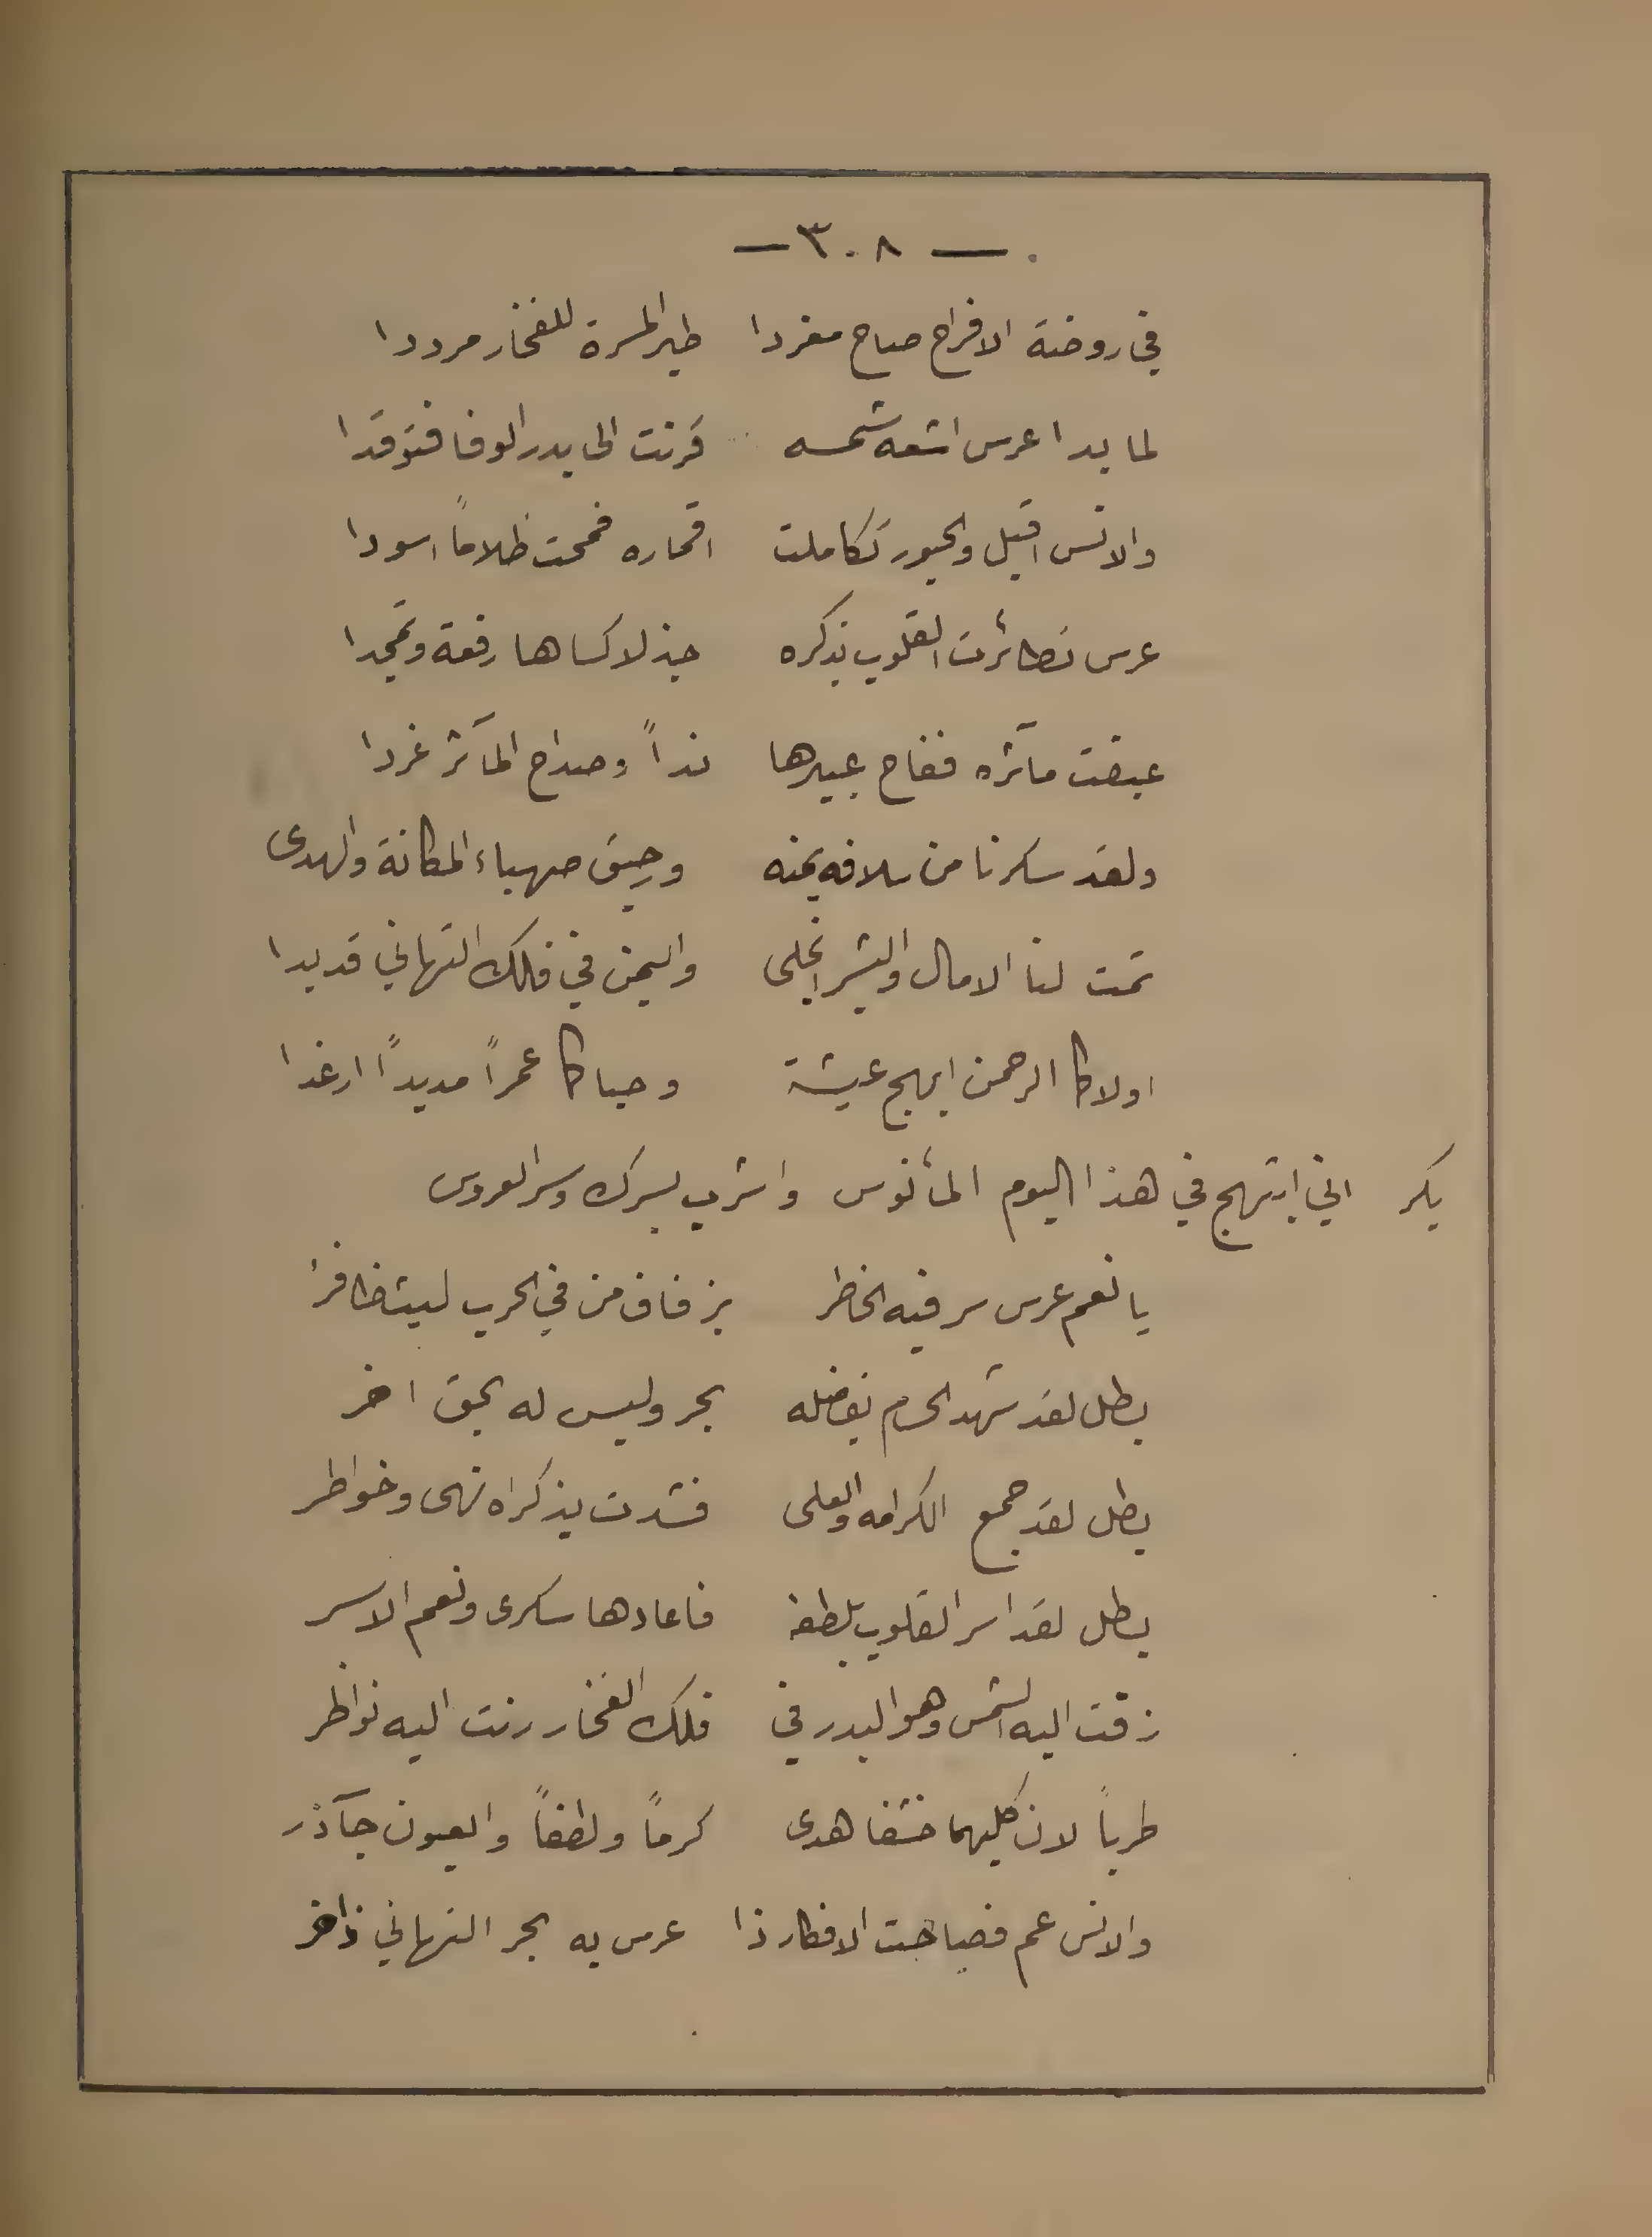 — ٣٠٨ —
في روضة الافراح صاح مغردا طير المسرة للفخار مرددا
لما بدا عرس اشعه شمسه فرنت الى بدر الوفا فتوقدا
والانس اقبل والحبور تكاملت اقماره فمحت ظلاماً اسودا
عرس تطائرت القلوب بذكره جذلا كساها رفعة وتمجدا
عبقت مآثره ففاح عبيرها نداً وصداح المآثر غردا
ولقد سكرنا من سلافه يمنه ورحيق صهباء المكانة والهدى
تمت لنا الامال والبشر انجلى واليمن في فلك التهاني قد بدا
اولاكما الرحمن ابهج عيشة وحباكما عمراً مديداً ارغدا
بكر اني ابتهج في هذا اليوم المأنوس واشرب بسرك وسر العروس
يا نعم عرس سر فيه الخاطر بزفاف من في الحرب ليث ظافر
بطل لقد شهد الحسام بفضله بحر وليس له بحق اخر
بطل لقد جمع الكرامه والعلى فشدت بذكراه نهى وخواطر
بطل لقد اسر القلوب بلطفه فاعادها سكرى ونعم الاسر
زفت اليه الشمس وهو البدر في فلك الفخار رنت اليه نواظر
طرباً لان كليهما خشفا هدى كرماً ولطفاً والعيون جآذر
والانس عم فصاحت الافكار ذا عرس به بحر التهاني ذاخر